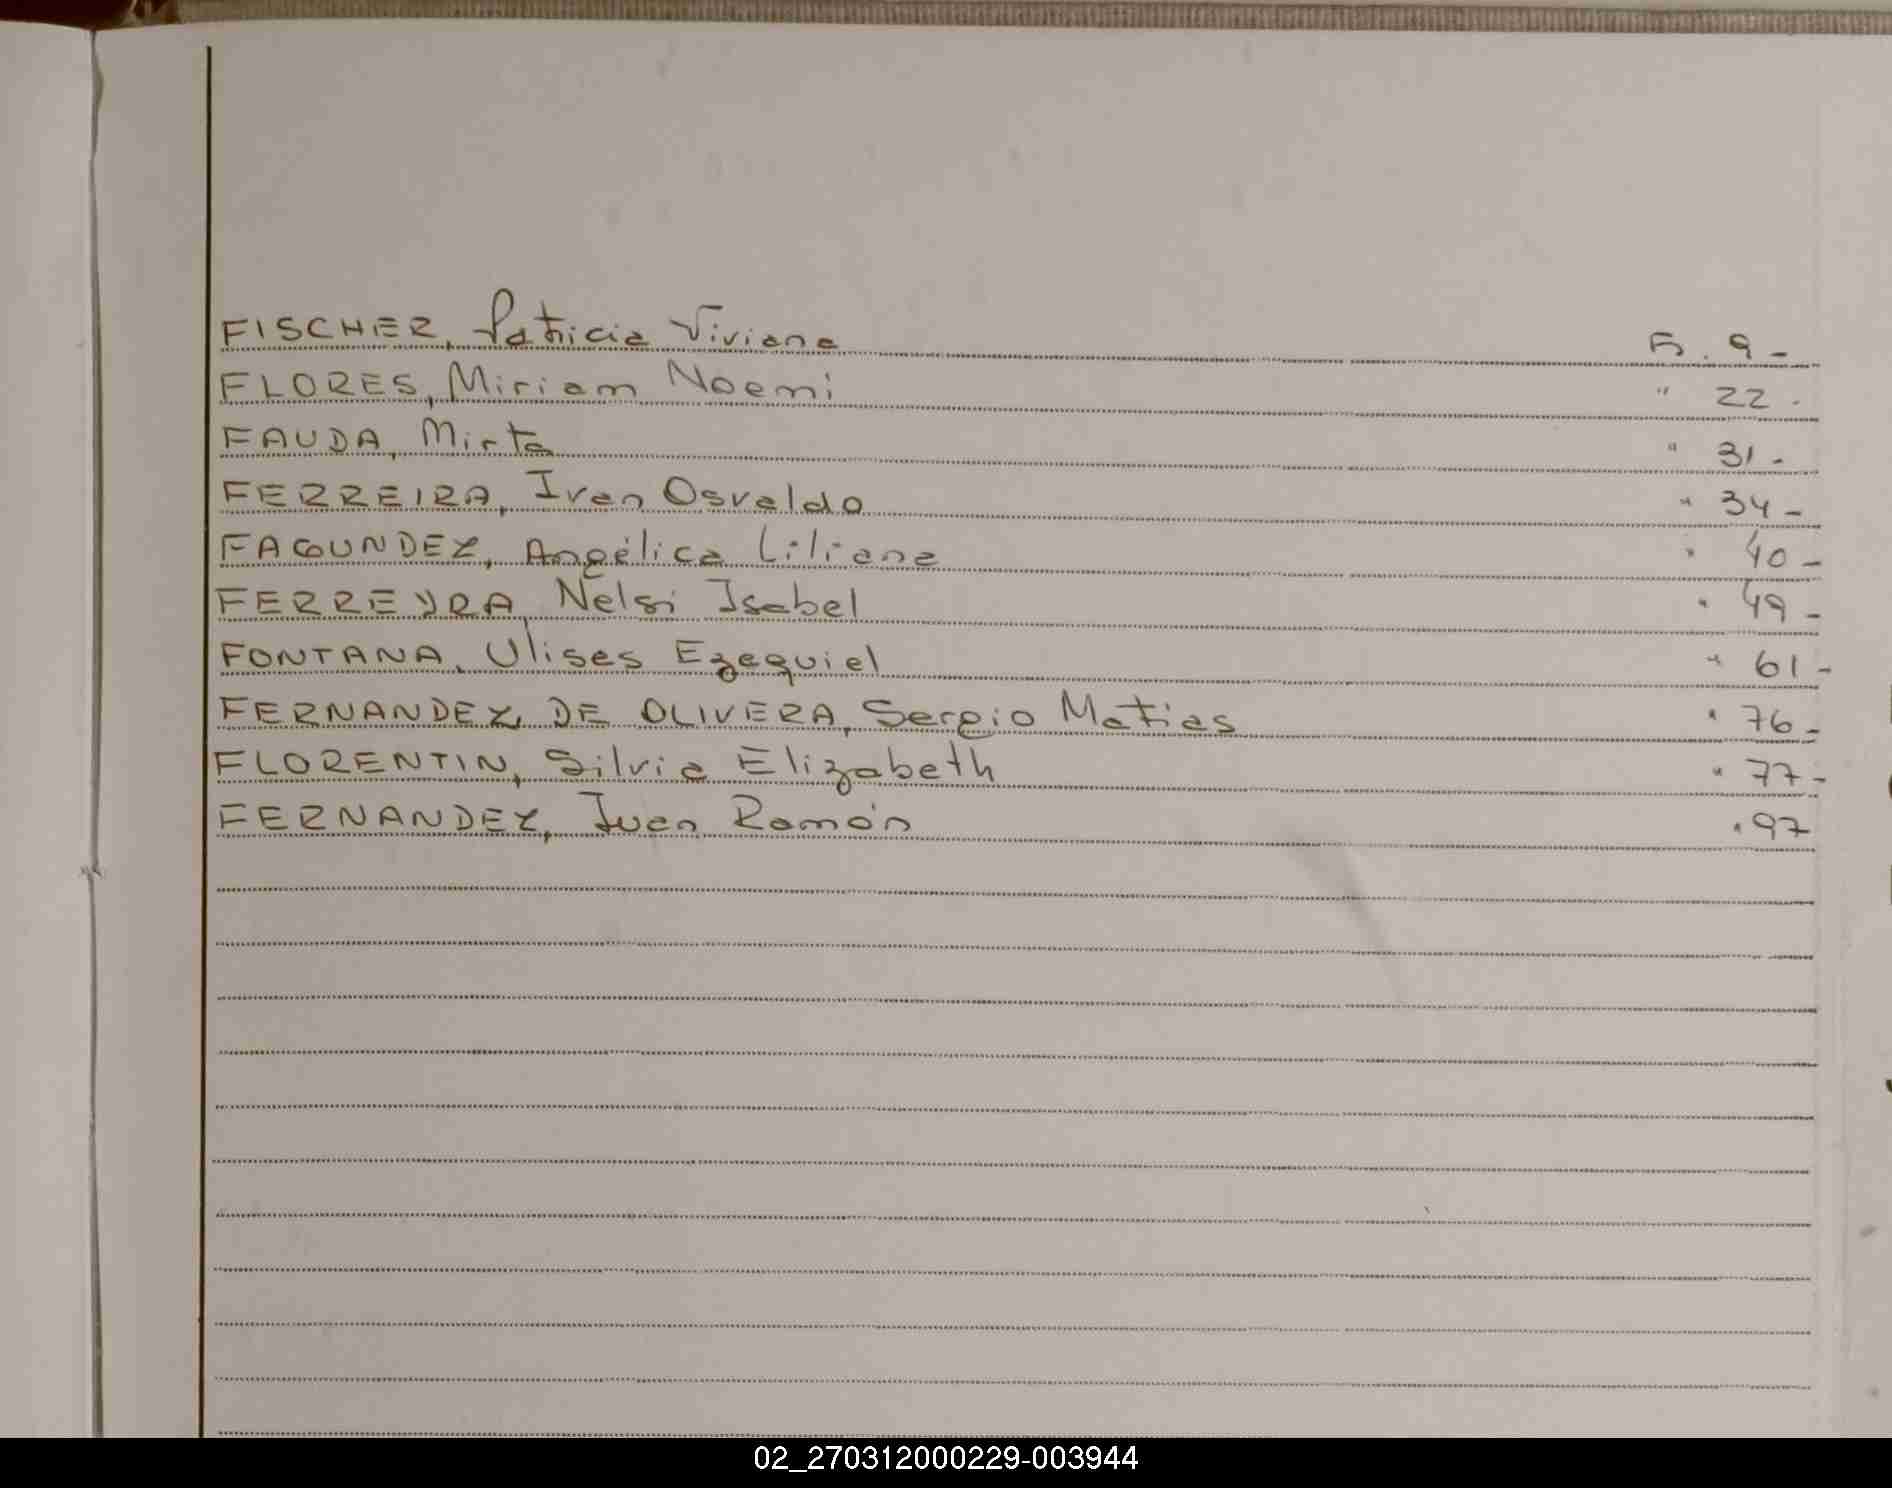 FISCHER, Patricia Viviana Fs. 9-
FLORES, Miriam Noemi " 22-
FAUDA, Mirta " 31-
FERREIRA, Ivan Osvaldo " 34-
FAGUNDEZ, Angélica Liliana " 40-
FERREYRA, Nelsi Isabel " 49-
FONTANA, Ulises Ezequiel " 61-
FERNANDEZ, DE OLIVERA, Sergio Matias " 76-
FLORENTIN, Silvia Elizabeth " 77-
FERNANDEZ, Juan Ramón " 97
02_270312000229-003944